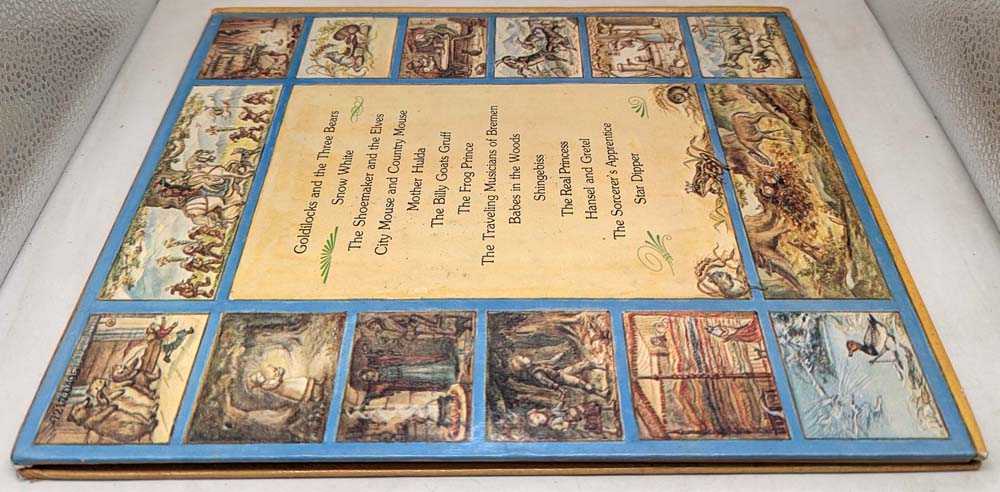 Goldilocks and the Three Bears
Snow White
The Shoemaker and the Elves
City Mouse and Country Mouse
Mother Hulda
The Billy Goats Gruff
The Frog Prince
The Traveling Musicians of Bremen
Babes in the Woods
Shingebiss
The Real Princess
Hansel and Gretel
The Sorcerer's Apprentice
Star Dipper